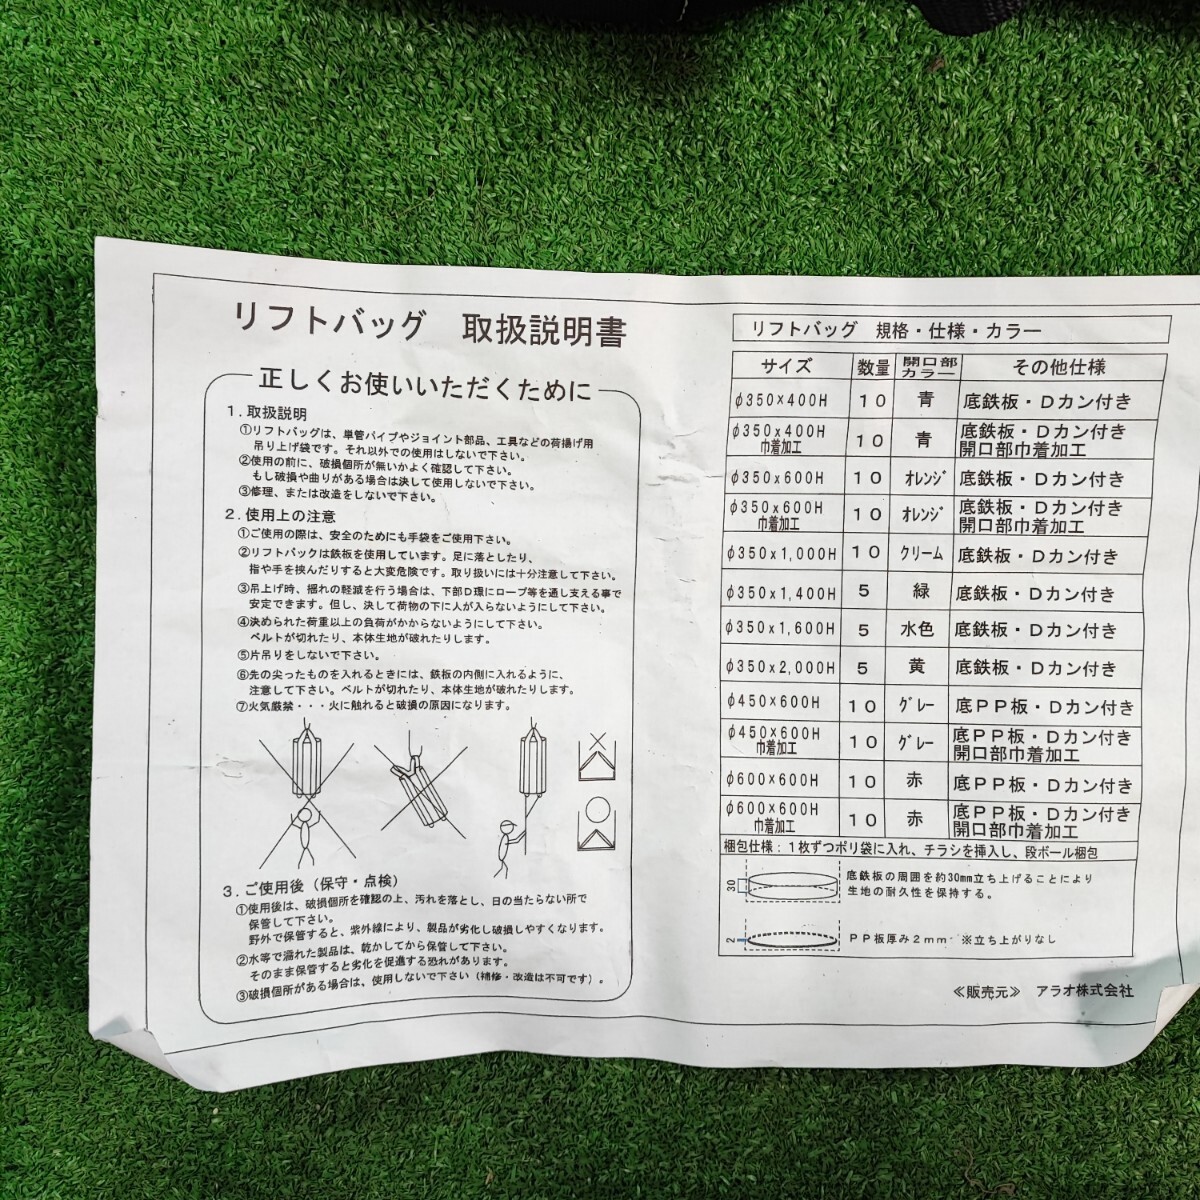 リフトバッグ　取扱説明書
正しくお使いいただくために
１．取扱説明
①リフトバッグは、単管パイプやジョイント部品、工具などの荷揚げ用
吊り上げ袋です。それ以外での使用はしないで下さい。
②使用の前に、破損個所が無いかよく確認して下さい。
もし破損や曲りがある場合は決して使用しないで下さい。
③修理、または改造をしないで下さい。
２．使用上の注意
①ご使用の際は、安全のためにも手袋をご使用下さい。
②リフトバックは鉄板を使用しています。足に落としたり、
指や手を挟んだりすると大変危険です。取り扱いには十分注意して下さい。
③吊上げ時、揺れの軽減を行う場合は、下部Ｄ環にロープ等を通し支える事で
安定できます。但し、決して荷物の下に人が入らないようにして下さい。
④決められた荷重以上の負荷がかからないようにして下さい。
ベルトが切れたり、本体生地が破れたりします。
⑤片吊りをしないで下さい。
⑥先の尖ったものを入れるときには、鉄板の内側に入れるように、
注意して下さい。ベルトが切れたり、本体生地が破れたりします。
⑦火気厳禁・・・火に触れると破損の原因になります。
３．ご使用後（保守・点検）
①使用後は、破損個所を確認の上、汚れを落とし、日の当たらない所で
保管して下さい。
野外で保管すると、紫外線により、製品が劣化し破損しやすくなります。
②水等で濡れた製品は、乾かしてから保管して下さい。
そのまま保管すると劣化を促進する恐れがあります。
③破損個所がある場合は、使用しないで下さい（補修・改造は不可です）。
リフトバッグ　規格・仕様・カラー
サイズ 数量 開口部カラー その他仕様
φ350×400H １０ 青 底鉄板・Ｄカン付き
φ350x400H 巾着加工 １０ 青 底鉄板・Ｄカン付き 開口部巾着加工
φ350x600H １０ ｵﾚﾝｼﾞ 底鉄板・Ｄカン付き
φ350x600H 巾着加工 １０ ｵﾚﾝｼﾞ 底鉄板・Ｄカン付き 開口部巾着加工
φ350x1,000H １０ クリーム 底鉄板・Ｄカン付き
φ350x1,400H ５ 緑 底鉄板・Ｄカン付き
φ350x1,600H ５ 水色 底鉄板・Ｄカン付き
φ350x2,000H ５ 黄 底鉄板・Ｄカン付き
φ450×600H １０ ｸﾞﾚｰ 底ＰＰ板・Ｄカン付き
φ450×600H 巾着加工 １０ ｸﾞﾚｰ 底ＰＰ板・Ｄカン付き 開口部巾着加工
φ600×600H １０ 赤 底ＰＰ板・Ｄカン付き
φ600×600H 巾着加工 １０ 赤 底ＰＰ板・Ｄカン付き 開口部巾着加工
梱包仕様：１枚ずつポリ袋に入れ、チラシを挿入し、段ボール梱包
30
底鉄板の周囲を約30mm立ち上げることにより
生地の耐久性を保持する。
2
ＰＰ板厚み２mm　※立ち上がりなし
≪販売元≫　アラオ株式会社